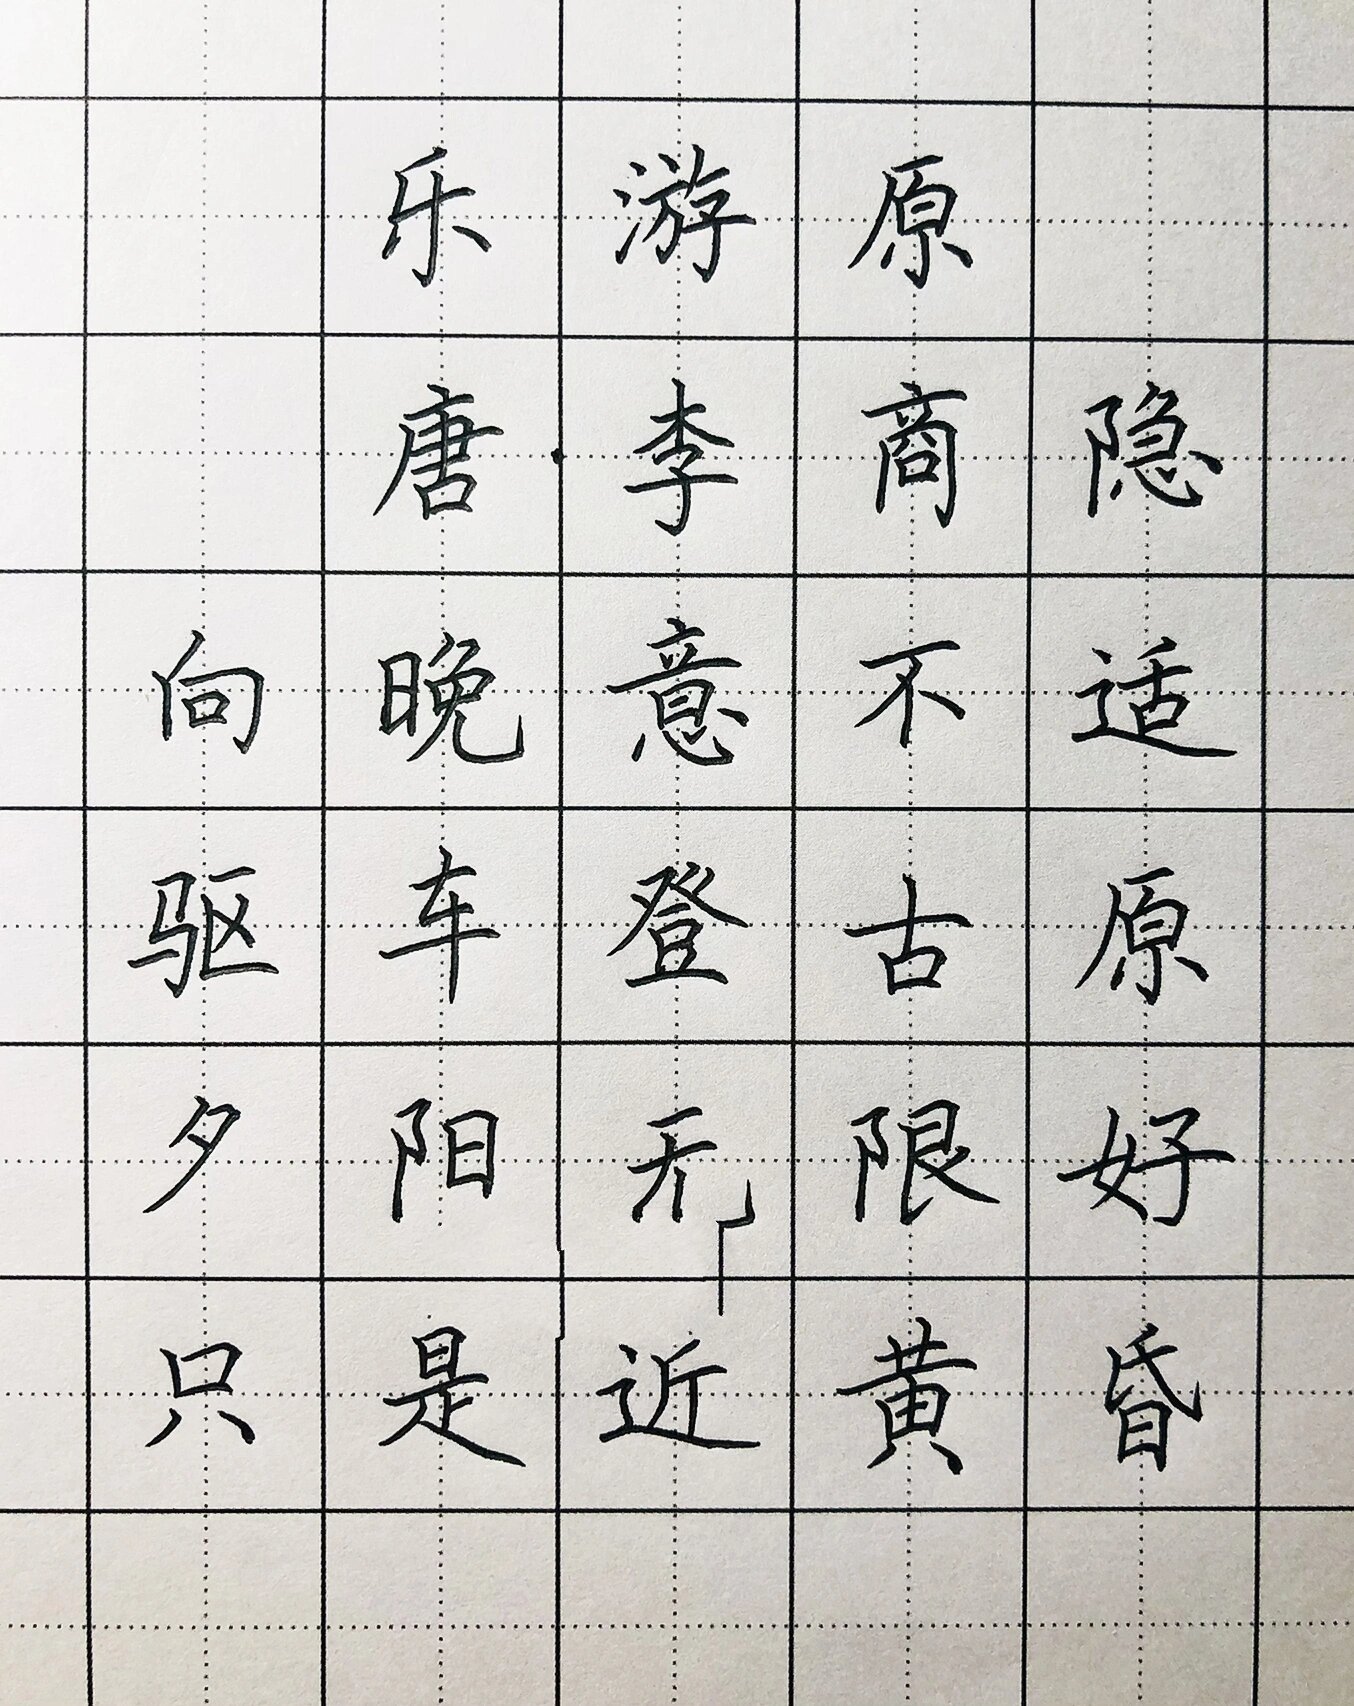 乐游原
唐·李商隐
向晚意不适
驱车登古原
夕阳无限好
只是近黄昏